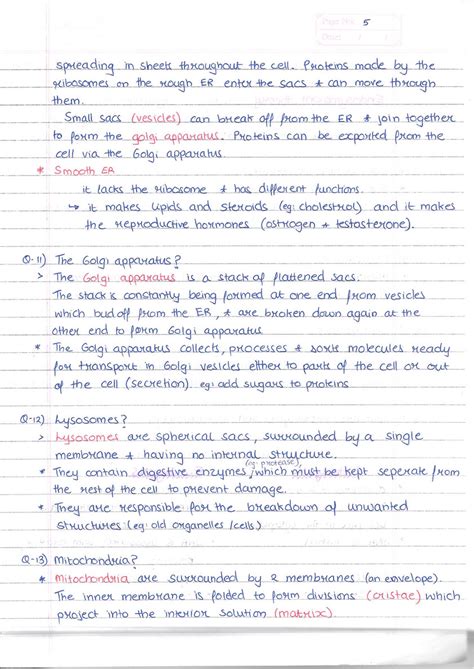 Page No. 5
Date: / /
spreading in sheets throughout the cell. Proteins made by the
ribosomes on the rough ER enter the sacs & can move through
them.
Small sacs (vesicles) can break off from the ER & join together
to form the golgi apparatus. Proteins can be exported from the
cell via the Golgi apparatus.
* Smooth ER
it lacks the ribosome & has different functions.
↳ it makes lipids and steroids (eg: cholestrol) and it makes
the reproductive hormones (ostrogen & testosterone).
Q-11) The Golgi apparatus?
> The Golgi apparatus is a stack of flattened sacs.
The stack is constantly being formed at one end from vesicles
which bud off from the ER, & are broken down again at the
other end to form Golgi apparatus
* The Golgi apparatus collects, processes & sorts molecules ready
for transport in Golgi vesicles either to parts of the cell or out
of the cell (secretion). eg: add sugars to proteins
Q-12) Lysosomes?
> Lysosomes are spherical sacs, surrounded by a single
membrane & having no internal structure.
(eg: protease)
* They contain digestive enzymes, which must be kept seperate from
the rest of the cell to prevent damage.
* They are responsible for the breakdown of unwanted
structures (eg: old organelles /cells)
Q-13) Mitochondria?
* Mitochondria are surrounded by 2 membranes (an envelope).
The inner membrane is folded to form divisions (cristae) which
project into the interior solution (matrix).